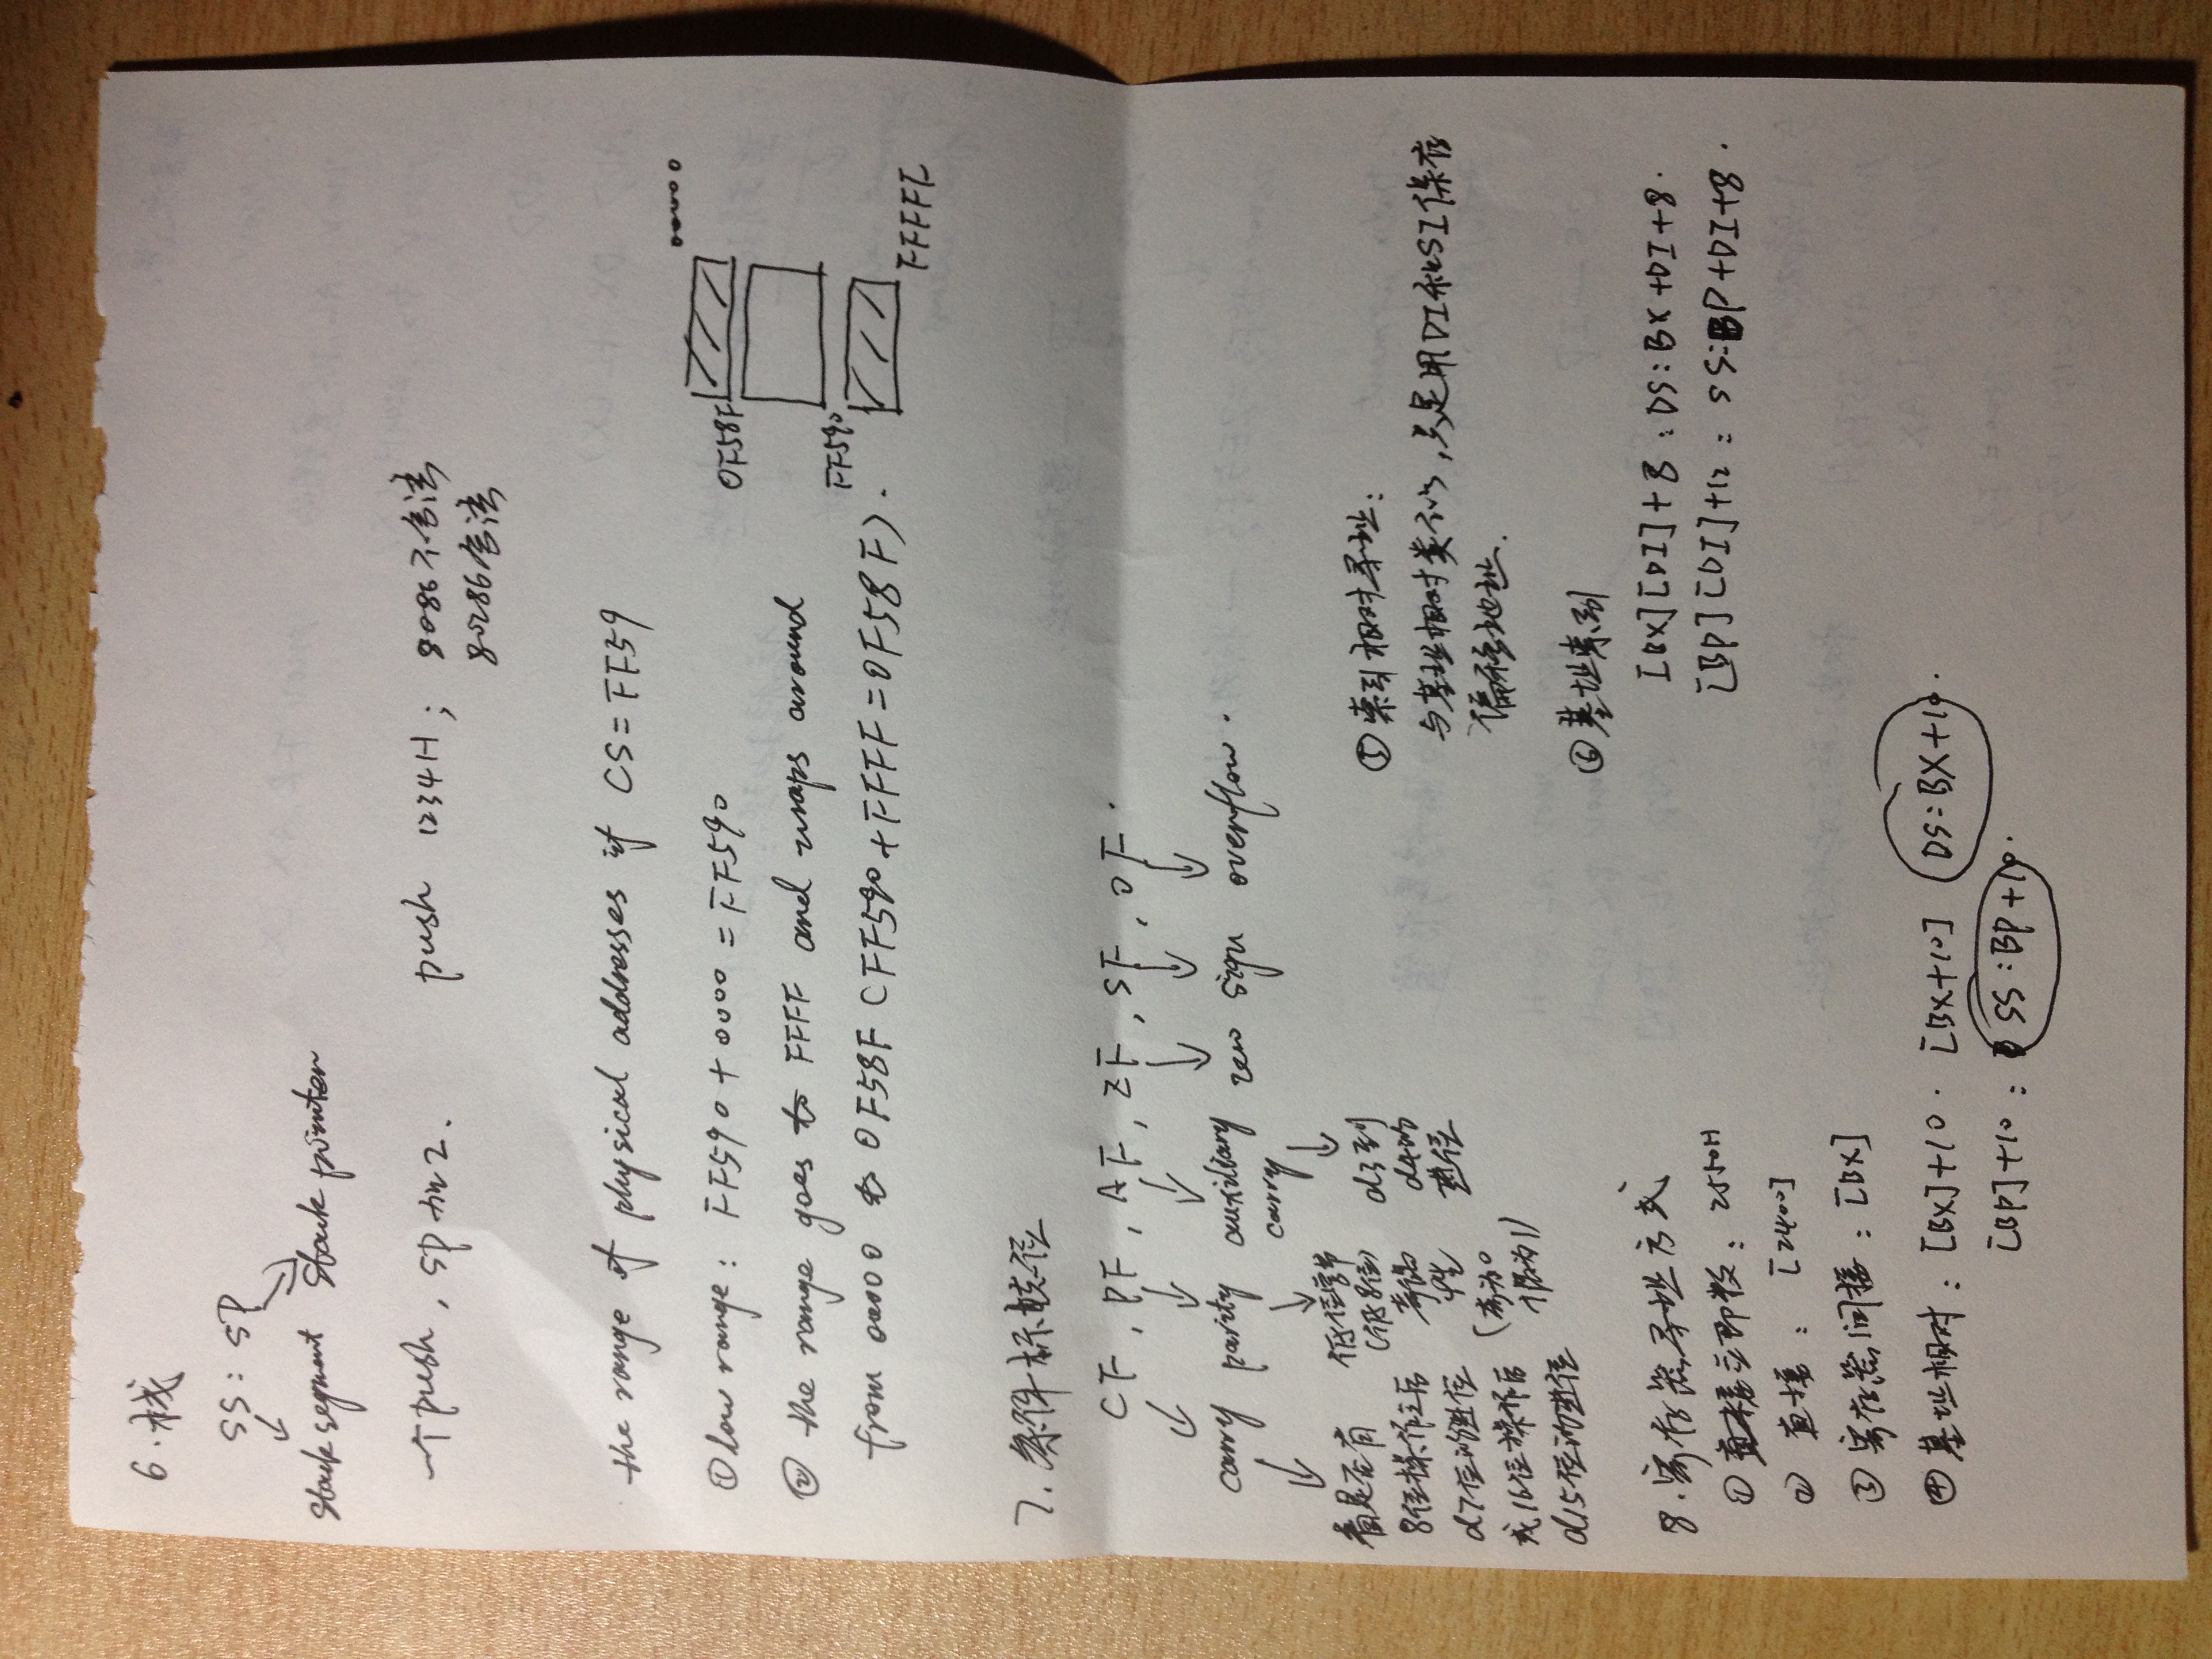 6.栈
SS: SP
Stack segment Stack pointer
一个push, SP加2. push 1234H; 8086不合法
80286合法
the range of physical addresses if CS=FF59
①low range: FF590+0000=FF590
② the range goes to FFFF and wraps around
from 00000 to 0F58F (FF590+FFFF=0F58F).
00000
0F58F
FF590
FFFFF
7.条件标志位
CF, PF, AF, ZF, SF, OF.
carry parity auxiliary zero sign overflow.
carry
看是否有
8位操作之后
d7位的进位
或16位操作后
d15位的进位
低位字节
(低8位)
奇偶
性
(奇为0
偶为1)
d3到
d4的
进位
8.寄存器寻址方式
① 立即数: 2550H
② 直接: [2400]
③ 寄存器间接: [BX]
④ 基址相对: [BX]+10. [BX+10] DS:BX+10.
[BP]+10: SS:BP+10.
⑤ 索引相对寻址:
与基址相对类似,只是用DI和SI保存
偏移地址.
⑥ 基址索引
[BX][DI]+8: DS:BX+DI+8.
[BP][DI]+12: SS:BP+DI+8.